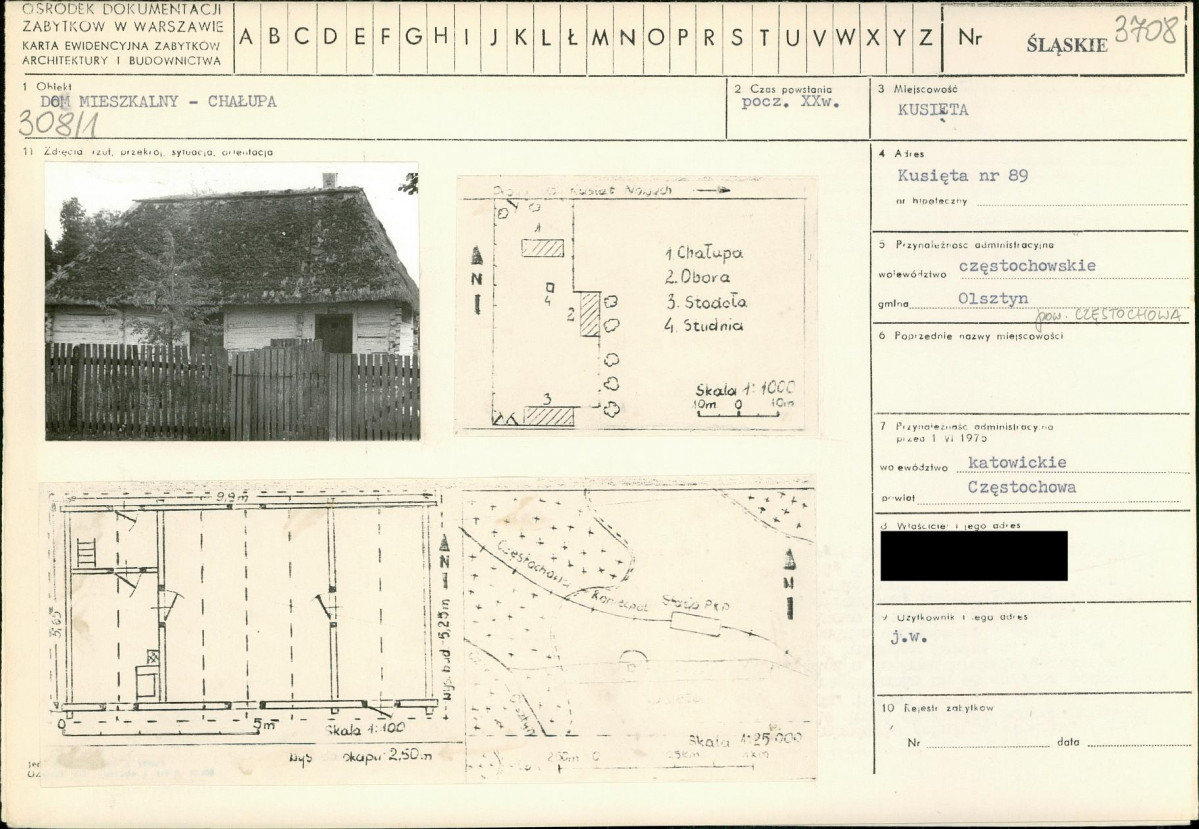 OŚRODEK DOKUMENTACJI
ZABYTKÓW W WARSZAWIE
KARTA EWIDENCYJNA ZABYTKÓW
ARCHITEKTURY I BUDOWNICTWA
A B C D E F G H I J K L Ł M N O P R S T U V W X Y Z
Nr ŚLĄSKIE 3708
1 Obiekt
DOM MIESZKALNY - CHAŁUPA
308/1
2 Czas powstania
pocz. XXw.
3 Miejscowość
KUSIĘTA
11 Zdjęcia rzut, przekrój, sytuacja, orientacja
4 Adres
Kusięta nr 89
nr hipoteczny
5 Przynależność administracyjna
województwo częstochowskie
gmina Olsztyn
pow. CZĘSTOCHOWA
6 Poprzednie nazwy miejscowości
7 Przynależność administracyjna
przed 1 VI 1975
województwo katowickie
powiat Częstochowa
8 Właściciel i jego adres
9 Użytkownik i jego adres
j.w.
10 Rejestr zabytków
Nr data
N
1
4
2
3
1 Chałupa
2. Obora
3. Stodoła
4. Studnia
Skala 1:1000
10m 0 10m
9,9m
N
wys. bud 5,25m
0 5m
Skala 1:100
wys okapu 2,50m
Częstochowa
Koniecpol
Stacja PKP
N
Skala 1:25 000
250m 0